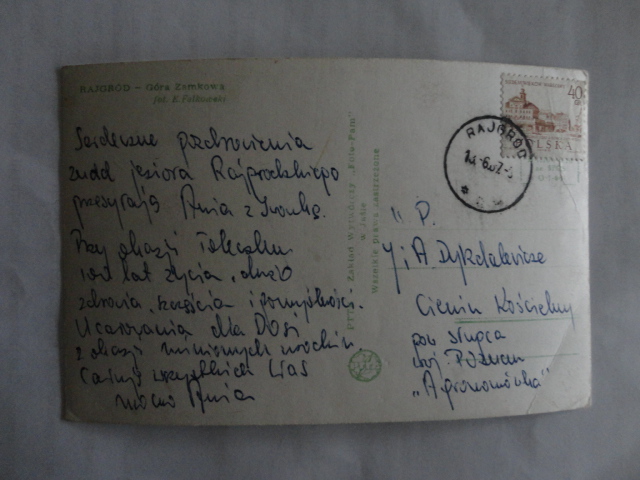 RAJGRÓD – Góra Zamkowa
fot. E. Falkowski
Serdeczne pozdrowienia
znad jeziora Rajgrodzkiego
przesyłają Ania z Iwonką.
Przy okazji
100 lat życia, dużo
zdrowia, szczęścia i pomyślności.
Ucałowania dla Dosi
z okazji minionych urodzin
Całuję wszystkich Was
mocno Ania
Zakład Wytwórczy „Foto-Pam"
w Jaśle
Wszelkie prawa zastrzeżone
40
POLSKA
RAJGRÓD
P.
J i A. Dykdalewicze
Ciemin Kościelny
pow słupca
woj. Poznań
„Agronomówka"